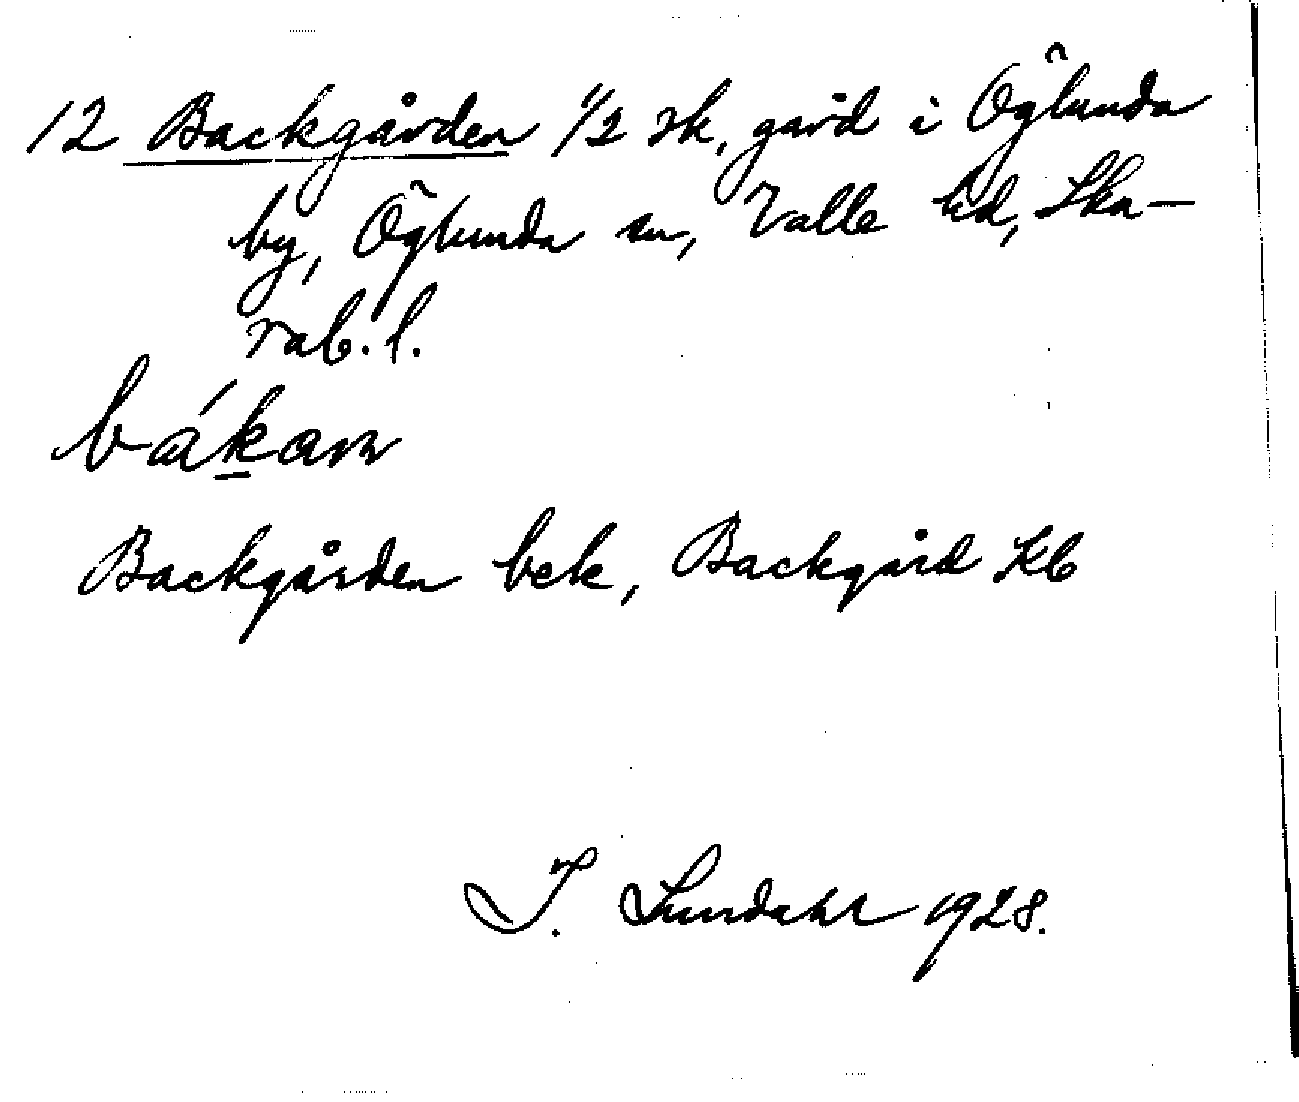 12 Backgården 1/2 sk, gård i Öglunda
by, Öglunda sn, Valle hd, Ska-
rab. l.
bákan
Backgården bek, Backgård Kb
I. Lundahl 1928.